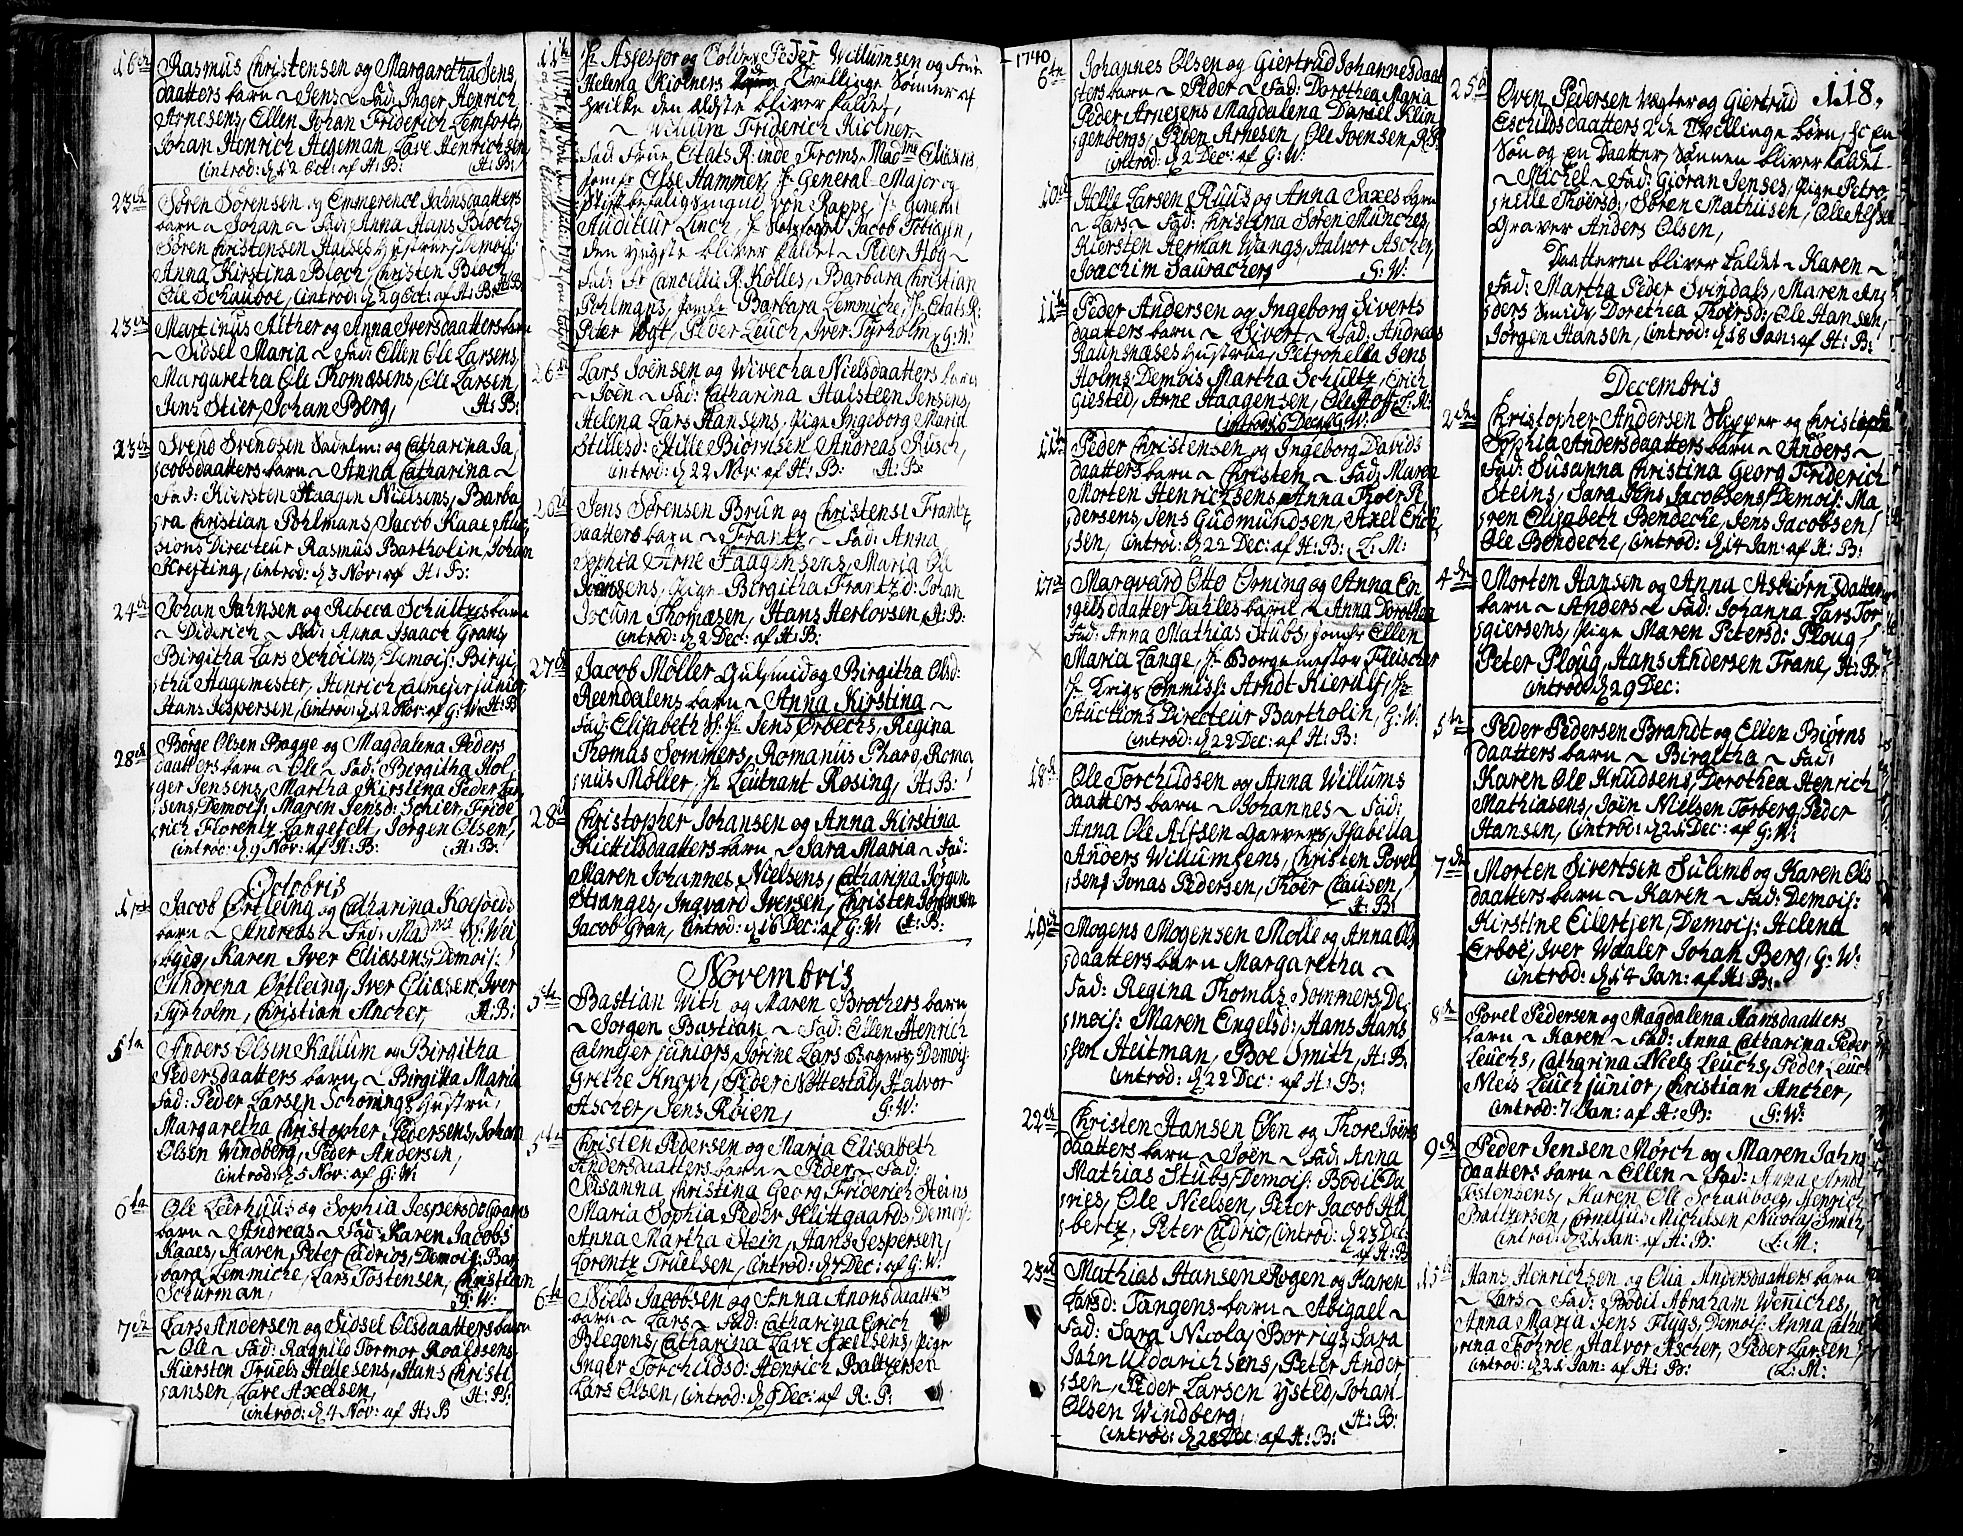 18de Rasmus Christensen og Margaretha Jens
daatters barn ~ Jens ~ Fad: Inger Henrich
Arnesens, Ellen Johan Friderich Lemforts,
Johan Henrich Hegeman, Lave Henrichsen
introd: d. 12 Oct: af H: B: H: B:
23de Sören Sörensen og Emmerence Jahnsdaatters
barn ~ Johan ~ Fad: Anna Hans Blochs,
Sören Christensen Halses Hustrue, Demois:
Anna Kirstina Bloch, Christen Bloch,
Ole Schauboe, introd: d. 29 Oct: af H: B: H: B:
23de Martinus Aither og Anna Iversdaatters barn
~ Sidsel Maria ~ Fad: Ellen Ole Larsens,
Margaretha Ole Thomæsens, Ole Larsen,
Jens Stier, Johan Berg, H: B:
23de Svend Svendsen Sadelm: og Catharina Ja-
cobsdaatters barn ~ Anna Catharina ~
Fad: Kiersten Haagen Nielsens, Barba-
ra Christian Pohlmans, Jacob Kaae, Auc-
sions Directeur Rasmus Bartholin, Johan
Kresting, introd: d. 3 Nov: af H: B:
24de Johan Jahnsen og Ribeca Schultzes barn
~ Diderich ~ Fad: Anna Isaach Grans,
Birgitha Lars Schöiens, Demois: Birgi-
tha Hagemester, Henrich Calmejer junior,
Hans Jespersen, introd: d. 12 Nov: af G: W: H: B:
28de Börge Olsen Bagge og Magdalena Peders
daatters barn ~ Ole ~ Fad: Birgitha Hol-
ger Jensens, Martha Kirstina Peder Lar-
sens, Demois: Maren Jensd: Schier, Fride-
rich Florentz Langefelt, Jörgen Olsen,
introd: d. 9 Nov: af H: B: H: B:
Octobris
1ste Jacob Örtleing og Catharina Koefoeds
barn ~ Andreas ~ Fad: Madme
Karen Iver Eliæsens, Demois:
Andrena Örtleing, Iver Eliæsen, Iver
Tyrholm, Christian Ancher, H: B:
5te Anders Olsen Kallum og Birgitha
Pedersdaatters barn ~ Birgitta Maria
Fad: Peder Larsen Schönings Hustru,
Margaretha Christopher Pedersens, Johan
Olsen Windberg, Peder Andersen,
introd: d. 5 Nov: af G: W:
6te Ole Leerhuus og Sophia Jespersd: Grams
barn ~ Andreas ~ Fad: Karen Jacobs
Kaaes, Karen Peter Cudrios, Demois: Bar-
bara Lemmiche, Lars Tostensen, Christian
Schurman, G: W:
7de Lars Andersen og Sidsel Olsdaatters barn
~ Ole ~ Fad: Ragnild Tormor Roaldsens,
Kiersten Truels Hellesens, Hans Christi-
ansen, Lave Axelsen, H: B:
introd: d. 4 Nov: af H: B
11te Hr Assessor og Peder Willumsen og Frue
Helena Kiölners Tvillinge Sønner af
hvilke den Ældste bliver kaldet,
~ Willum Friderich Kiölner ~
Fad: Frue Etats R:inde Froms, Madme Eliæsens,
Jomfr Else Hammer, Hr General Major og
Stiftsbefalingsmand von Rappe, Hr General
Auditeur Linch, Hr Slotzfoget Jacob Tostsen,
den yngste bliver kaldet ~ Peder Hög ~
Fad: Hr Cancellie R: Rölles, Barbara Christian
Pohlmans, Jomfr Barbara Lemmiche, Hr Etats R:
Peter Vogt, Peder Leuch, Iver Tyrholm, G: W:
26de Lars Joënsen og Wivecha Nielsdaatters barn
~ Joen ~ Fad: Catharina Halsteen Jensens,
Helena Lars Hansens, Pige Ingeborg Maria
Stillesd: Hille Biörnsen, Andreas Rusch,
introd: d. 22 Nov: af H: B: H: B:
26de Jens Sörensen Brun og Christense Frantz
daatters barn ~ Frantz ~ Fad: Anna
Sophia Arne Faagensens, Maria Ole
Joansens, Pige Birgitha Frantzd: Johan
Jocum Thomæsen, Hans Herlovsen, H: B:
introd: d. 2 Dec: af H: B:
27de Jacob Möller Gulsmid og Birgitha Olsd:
Reendalens barn ~ Anna Kirstina ~
Fad: Elisabeth Jens Örbechs, Regina
Thomas Sommers, Romanus Pharo, Roma-
nus Möller, Hr Leutnant Rosing, H: B:
28de Christopher Johansen og Anna Kirstina
Kittilsdaatters barn ~ Sara Maria ~ Fad:
Maren Johannes Nielsens, Catharina Jörgen
Stranges, Ingvard Iversen, Christen Jörgensen
Jacob Gran, introd: d. 16 Dec: af G: W: H: B:
Novembris
5te Bastian With og Maren Brochers barn
~ Jorgen Bastian ~ Fad: Ellen Henrich
Calmejer juniors, Jörine Lars Bagers, Demois:
Grethe Knoph, Peder Nöttestad, Halvor
Ascher, Jens Röien, G: W:
5te Christen Pedersen og Maria Elisabeth
Andersdaatters barn ~ Peder ~ Fad:
Susanna Christina Georg Friderich Steins
Maria Sophia Peder Klittgaards, Demois:
Anna Martha Stein, Hans Jespersen,
Lorentz Truelsen, introd: d. 7 Dec: af G: W:
6te Niels Jacobsen og Anna Amonsdaatters
barn ~ Lars ~ Fad: Catharina Erich
Blegens, Catharina Lave Axelsens, Pige
Inger Torchildsd: Henrich Baltzersen
Lars Olsen, introd: d. 9 Dec: af R: P:
1740
6te Johannes Olsen og Giertrud Johannesdaat-
ters barn ~ Peder ~ Fad: Dorothea Maria
Peder Arnesens, Magdalena Daniel Klin-
genbergs, Peder Arnesen, Ole Svensen, R: P:
introd: d. 2 Dec: af G: W:
10de Helle Larsen Ruus og Anna Saxes barn
~ Lars ~ Fad: Christina Sören Münches,
Kiersten Herman Wangs, Halvor Ascher,
Joachim Saurachers G: W:
11te Peder Andersen og Ingeborg Siverts
daatters barn ~ Sivert ~ Fad: Andreas
Raunsnæses Hustrue, Petronella Jens
Holms, Demois Martha Schultz, Erich
Giested, Arne Haagensen, Ole Hof, L: M:
introd: d. 6 Dec: G: W:
11te Peder Christensen og Ingeborg Davids
daatters barn ~ Christen ~ Fad: Maren
Morten Henrichsens, Anna Thoer Pe-
dersens, Jens Gudmundsen, Axel Erich-
sen, introd: d. 22 Dec: af H: B: L: M:
17de Marqvard Otto Örning og Anna En-
gelsdaatter Dahles barn ~ Anna Dorothea
Fad: Anna Mathias Stubs, Jomfr Ellen
Maria Lange, Hr Borgemester Fleischer
Hr Krigs Commiss: Arndt Kierulf, Hr
Auctions Directeur Bartholin, G: W:
introd: d. 22 Dec: af H: B:
18de Ole Torchildsen og Anna Willums
daatters barn ~ Johannes ~ Fad:
Anna Ole Alfsen Garvers, Isabella
Anders Willumsens, Christen Povel-
sen, Jonas Pedersen, Thoer Clausen,
H: B:
19de Mogens Mogensen Molle og Anna Ols
daatters barn Margaretha ~
Fad: Regina Thomas Sommers, De-
mois: Maren Engelsd: Hans Hans-
sen Heitman, Boe Smith, H: B:
introd: d. 22 Dec: af H: B:
22de Christen Hansen Öen og Thore Joëns
daatters barn ~ Joën ~ Fad: Anna
Mathias Stubs, Demois: Bodil Da-
nies, Ole Nielsen, Peter Jacob Hu-
bertz, Peter Cudrio, introd: d. 23 Dec:
af H: B:
23de Mathias Hansen Rogen og Karen
Larsd: Tangens barn ~ Abigael ~
Fad: Sara Nicolai Borrigs, Sara
Jahn Uldarichsens, Peter Ander-
sen, Peder Larsen Ysted, Johan
Olsen Windberg, H: B:
introd: d. 28 Dec: af H: B:
118.
25de Oven Pedersen Vægter og Giertrud
Eschildsdaatters 2de Tvillinge børn, sc: en
Søn og en Daatter, Sønnen bliver kaldet
~ Michel ~ Fad: Gioran Jenses, Pige Petro-
nelle Thoersd: Sören Mathiisen, Ole Alfsen
Graver Anders Olsen,
Daatteren bliver kaldet ~ Karen ~
Fad: Martha Peder Svindals, Maren An-
ders Smids, Dorethea Thoersd: Ole Hansen,
Jörgen Hansen, introd: d. 18 Jan: af H: B:
Decembris
2den Christopher Andersen Skipper og
Sophia Andersdaatters barn ~ Anders ~
Fad: Susanna Christina Georg Friderich
Steins, Sara Jens Jacobsens, Demois: Ma-
ren Elisabeth Bendeche, Jens Jacobsen,
Ole Bendeche, introd: d. 14 Jan: af H: B:
4de Morten Hansen og Anna Asbiörnsdaatters
barn ~ Anders ~ Fad: Johanna Lars Tor-
giersens, Pige Maren Petersd: Ploug,
Peter Ploug, Hans Andersen Trane, H: B:
introd: d. 29 Dec:
5te Peder Pedersen Brandt og Ellen Biörns
daatters barn ~ Birgitha ~ Fad:
Karen Ole Knudsens, Dorothea Henrich
Mathiasens, Joën Nielsen Torberg, Peder
Hansen, introd: d. 21 Dec: af G: W:
7de Morten Sivertsen Sulimb og Karen Ols
daatters barn ~ Karen ~ Fad: Demois:
Kirstine Eilertsen, Demois: Helena
Erboe, Iver Waaler, Johan Berg, G: W:
introd: d. 14 Jan: af H: B:
8de Povel Pedersen og Magdalena Hansdaatters
barn ~ Karen ~ Fad: Anna Catharina Peder
Leuchs, Catharina Niels Leuchs, Peder Leuch
Niels Leuch junior, Christian Ancher,
introd: 7 Jan: af H: B: G: W:
9de Peder Jensen Mörch og Maren Jahns
daatters barn ~ Ellen ~ Fad: Anna Arndt
Tostensens, Karen Ole Schauboes, Henrich
Baltzersen, Cornelius Michelsen, Nicolaj Smith,
introd: d. 21 Jan: af H: B: L: M:
15de Hans Henrichsen og Olia Andersdaatters barn
~ Lars ~ Fad: Bodil Abraham Wenniches,
Anna Maria Jens Flygs, Demois: Anna Catha-
rina Tohroe, Halvor Ascher, Peder Larsen,
introd: d. 21 Jan: af H: B: L: M: